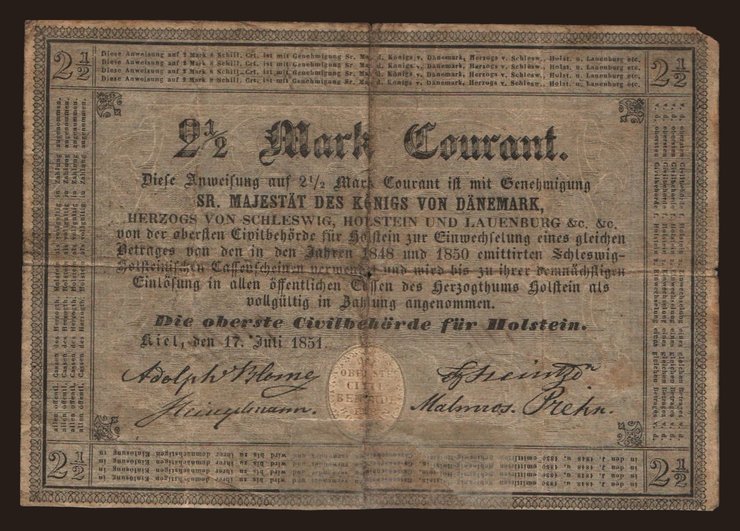 2 1/2
2 1/2
Diese Anweisung auf 2 Mark 8 Schill. Crt. ist mit Genehmigung Sr. Maj. d. Königs v. Dänemark, Herzogs v. Schlesw., Holst. u. Lauenburg etc.
Diese Anweisung auf 2 Mark 8 Schill. Crt. ist mit Genehmigung Sr. Maj. d. Königs v. Dänemark, Herzogs v. Schlesw., Holst. u. Lauenburg etc.
Diese Anweisung auf 2 Mark 8 Schill. Crt. ist mit Genehmigung Sr. Maj. d. Königs v. Dänemark, Herzogs v. Schlesw., Holst. u. Lauenburg etc.
Diese Anweisung auf 2 Mark 8 Schill. Crt. ist mit Genehmigung Sr. Maj. d. Königs v. Dänemark, Herzogs v. Schlesw., Holst. u. Lauenburg etc.
2 1/2 Mark Courant.
Diese Anweisung auf 2 1/2 Mark Courant ist mit Genehmigung
SR. MAJESTÄT DES KÖNIGS VON DÄNEMARK,
HERZOGS VON SCHLESWIG, HOLSTEIN UND LAUENBURG &c. &c.
von der obersten Civilbehörde für Holstein zur Einwechselung eines gleichen
Betrages von den in den Jahren 1848 und 1850 emittirten Schleswig-
Holsteinischen Cassenscheinen verwendet und wird bis zu ihrer demnächstigen
Einlösung in allen öffentlichen Cassen des Herzogthums Holstein als
vollgültig in Zahlung angenommen.
Die oberste Civilbehörde für Holstein.
Kiel, den 17. Juli 1851.
Adolph Blome
Heintze
Heinzelmann.
OBERSTE
CIVIL
BEHÖRDE
Malmros. Prehn.
2 1/2
2 1/2